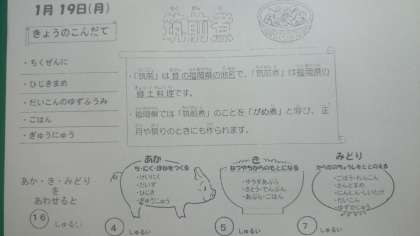 1月19日(月)
筑前煮
きょうのこんだて
・ちくぜんに
・ひじきまめ
・だいこんのゆずふうみ
・ごはん
・ぎゅうにゅう
・「筑前」は昔の福岡県の地名で、「筑前煮」は福岡県の
郷土料理です。
・福岡県では「筑前煮」のことを「がめ煮」と呼び、正
月や祭りのときにも作られます。
あか・き・みどり
を
あわせると
16 しゅるい
あか
ち・にく・ほねをつくる
・けいにく
・だいず
・ひじき
・ぎゅうにゅう
4 しゅるい
き
ねつやちからのもとになる
・サラダあぶら
・さとう・でんぷん
・あぶら・ごはん
5 しゅるい
みどり
からだのちょうしをととのえる
・ごぼう・れんこん
・さんどまめ
・にんじん・しいたけ
・だいこん
・ゆずかじゅう
7 しゅるい